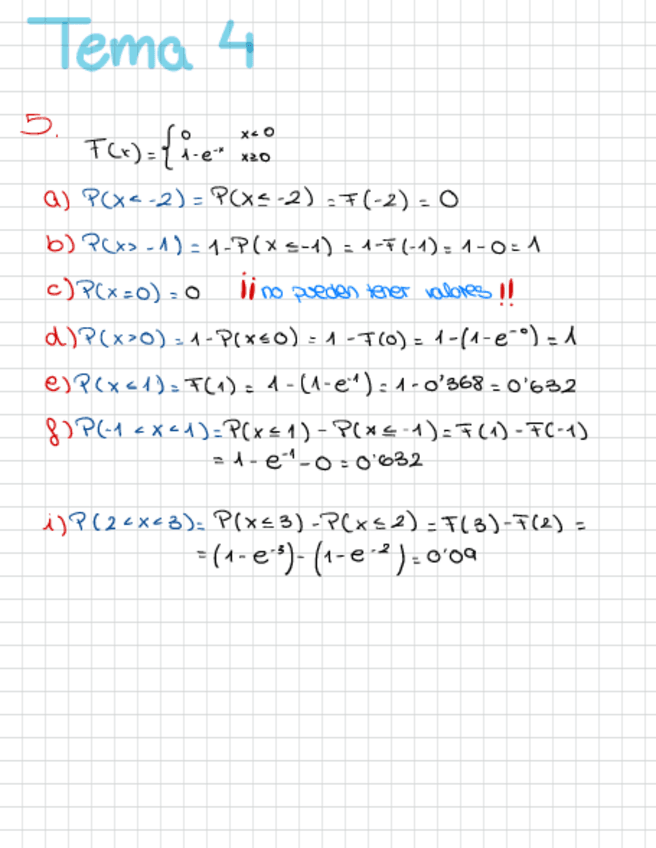 Tema 4
5.
F(x) = { 0 x<0
1-e⁻ˣ x≥0
a) P(x<-2) = P(x≤-2) = F(-2) = 0
b) P(x>-1) = 1-P(x≤-1) = 1-F(-1) = 1-0 = 1
c) P(x=0) = 0 ¡¡no pueden tener valores!!
d) P(x>0) = 1-P(x≤0) = 1-F(0) = 1-(1-e⁻⁰) = 1
e) P(x<1) = F(1) = 1-(1-e⁻¹) = 1-0'368 = 0'632
f) P(-1<x<1) = P(x≤1) - P(x≤-1) = F(1) - F(-1)
= 1-e⁻¹-0 = 0'632
i) P(2<x<3) = P(x≤3) - P(x≤2) = F(3) - F(2) =
= (1-e⁻³) - (1-e⁻²) = 0'09